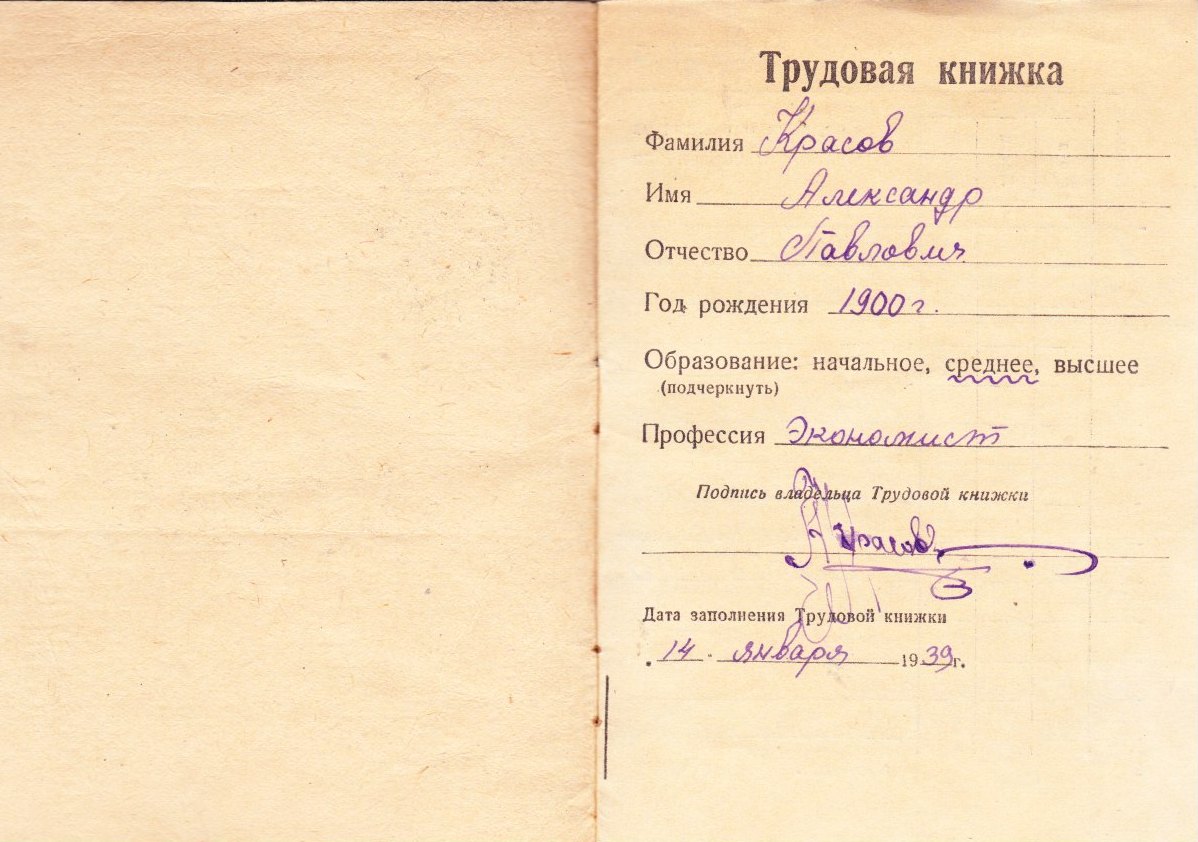 Трудовая книжка
Фамилия Красов
Имя Александр
Отчество Павлович
Год рождения 1900 г.
Образование: начальное, среднее, высшее
(подчеркнуть)
Профессия Экономист
Подпись владельца Трудовой книжки
Красов
Дата заполнения Трудовой книжки
14 января 1939 г.